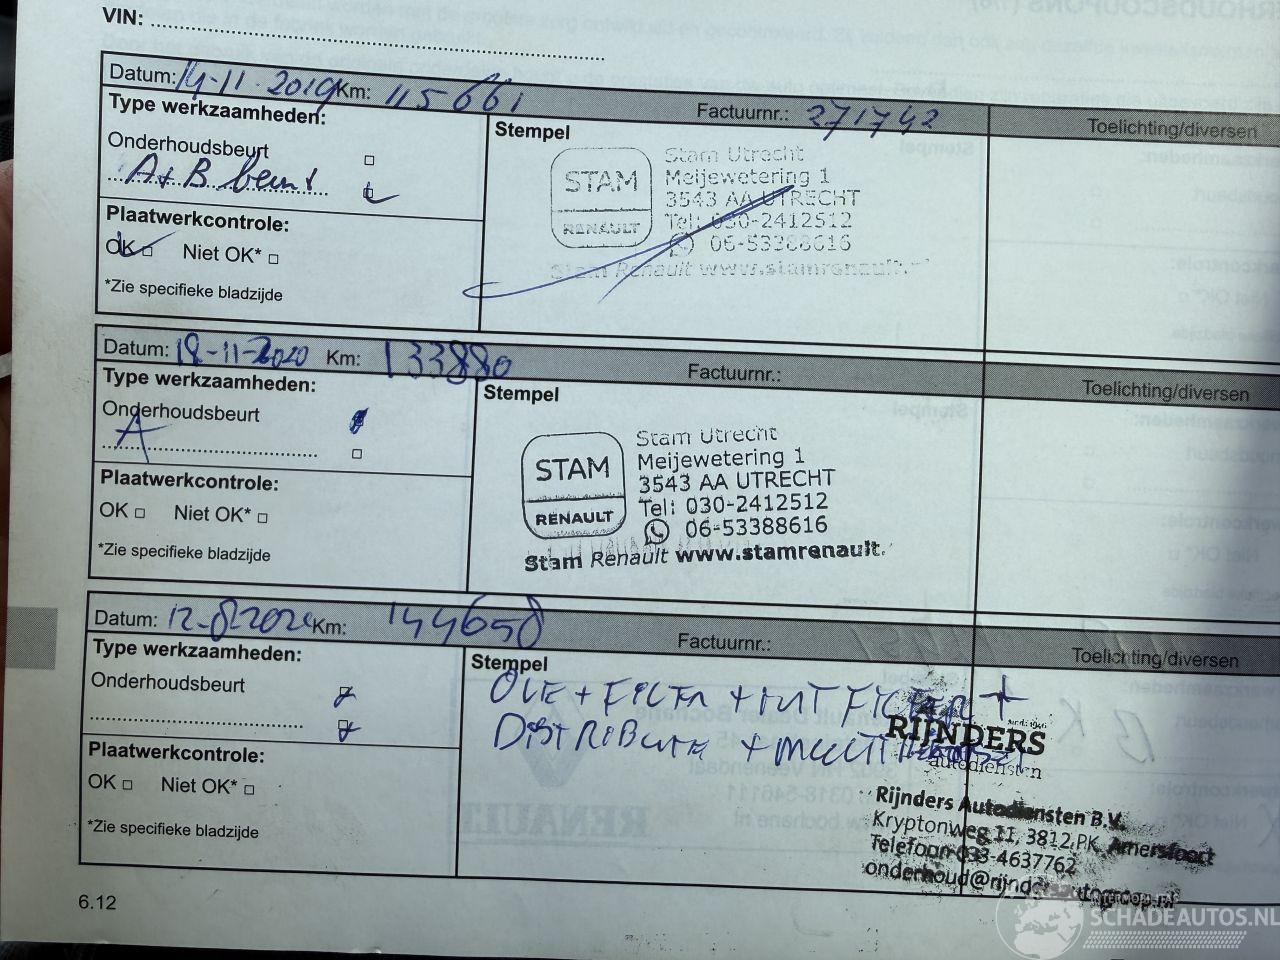 VIN:
Datum: 14-11-2019 Km: 115661 Factuurnr.: 271742 Toelichting/diversen
Type werkzaamheden:
Stempel
Onderhoudsbeurt
A+B beurt
Plaatwerkcontrole:
OK Niet OK*
*Zie specifieke bladzijde
STAM
RENAULT
Stam Utrecht
Meijewetering 1
3543 AA UTRECHT
Tel: 030-2412512
06-53388616
Stam Renault www.stamrenault.
Datum: 18-11-2020 Km: 133880 Factuurnr.: Toelichting/diversen
Type werkzaamheden:
Stempel
Onderhoudsbeurt
A
Plaatwerkcontrole:
OK Niet OK*
*Zie specifieke bladzijde
STAM
RENAULT
Stam Utrecht
Meijewetering 1
3543 AA UTRECHT
Tel: 030-2412512
06-53388616
Stam Renault www.stamrenault.
Datum: 12-8-202 Km: 144658 Factuurnr.: Toelichting/diversen
Type werkzaamheden:
Stempel
Onderhoudsbeurt
Plaatwerkcontrole:
OK Niet OK*
*Zie specifieke bladzijde
OLIE + FILTER + FILTER +
DISTRIBUTIE +
RIJNDERS
autodiensten
Rijnders Autodiensten B.V.
Kryptonweg 11, 3812 PK Amersfoort
Telefoon 033-4637762
6.12
SCHADEAUTOS.NL